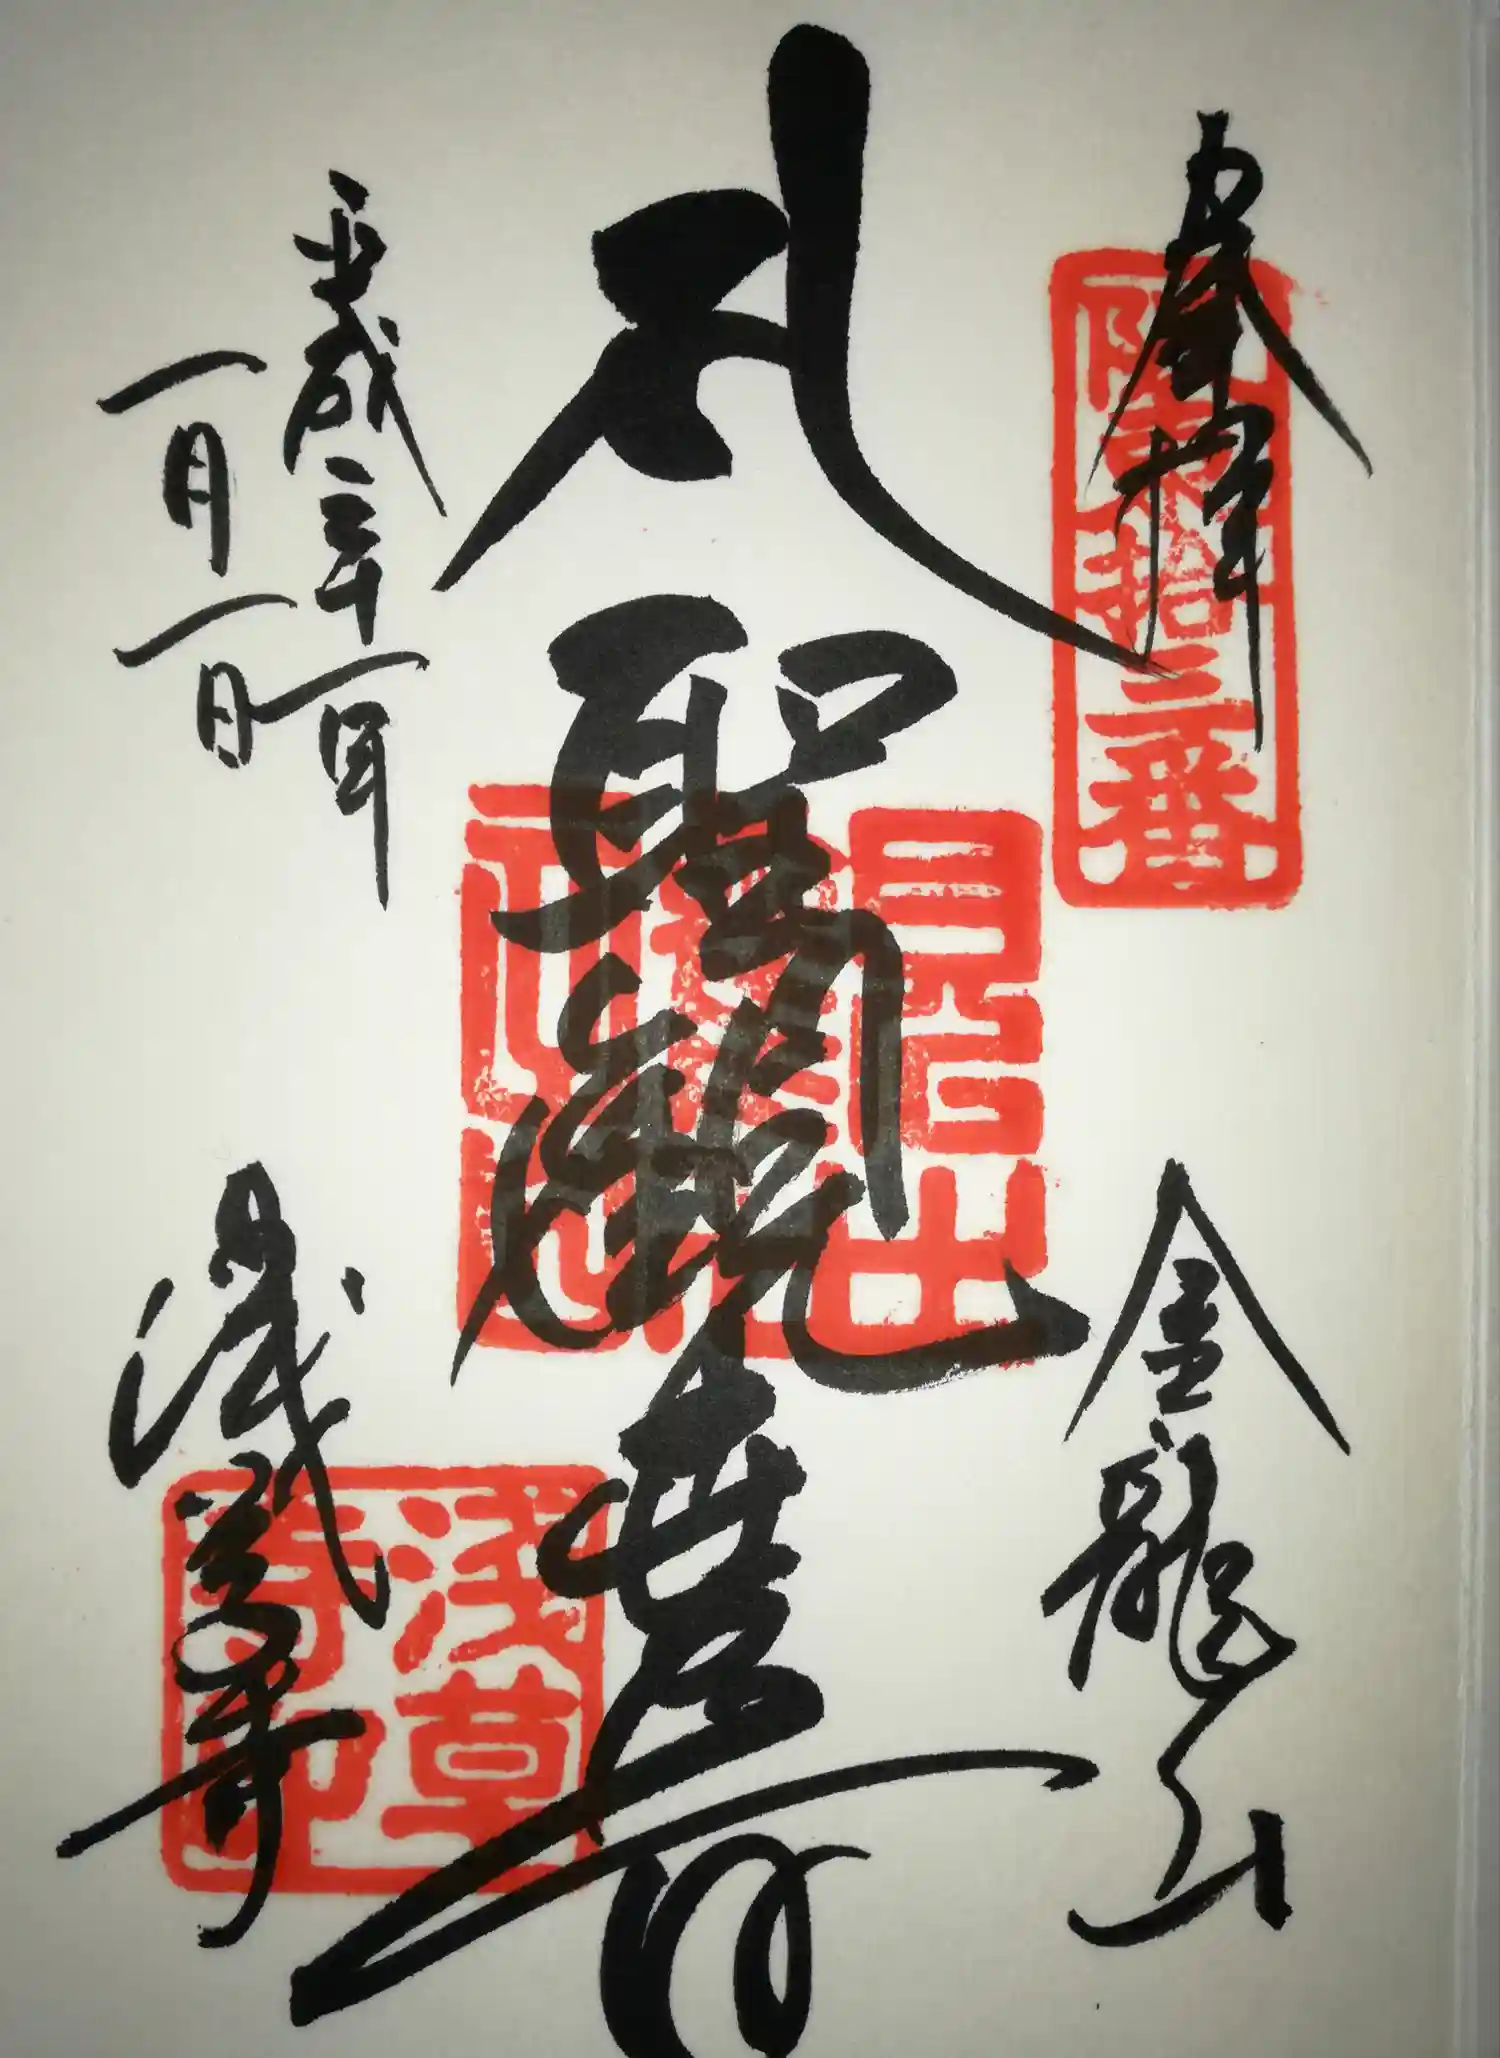 奉拝
阪東拾三番
金龍山
聖観世音
平成三十一年
一月一日
浅草寺
淺草
寺印